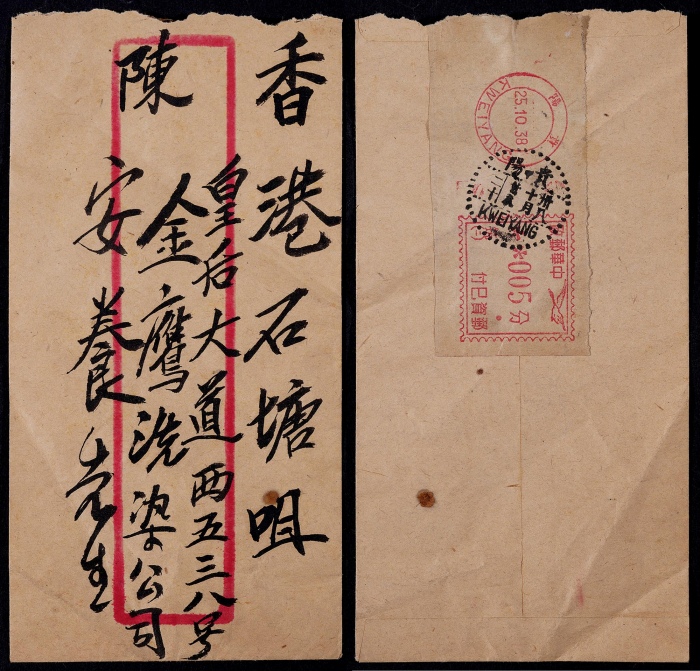 香港石塘咀
皇后大道西五三八号
金鷹洗染公司
陳安養先生
25.10.38
KWEIYANG
KWEIYANG
中華郵政
*005分
郵資已付